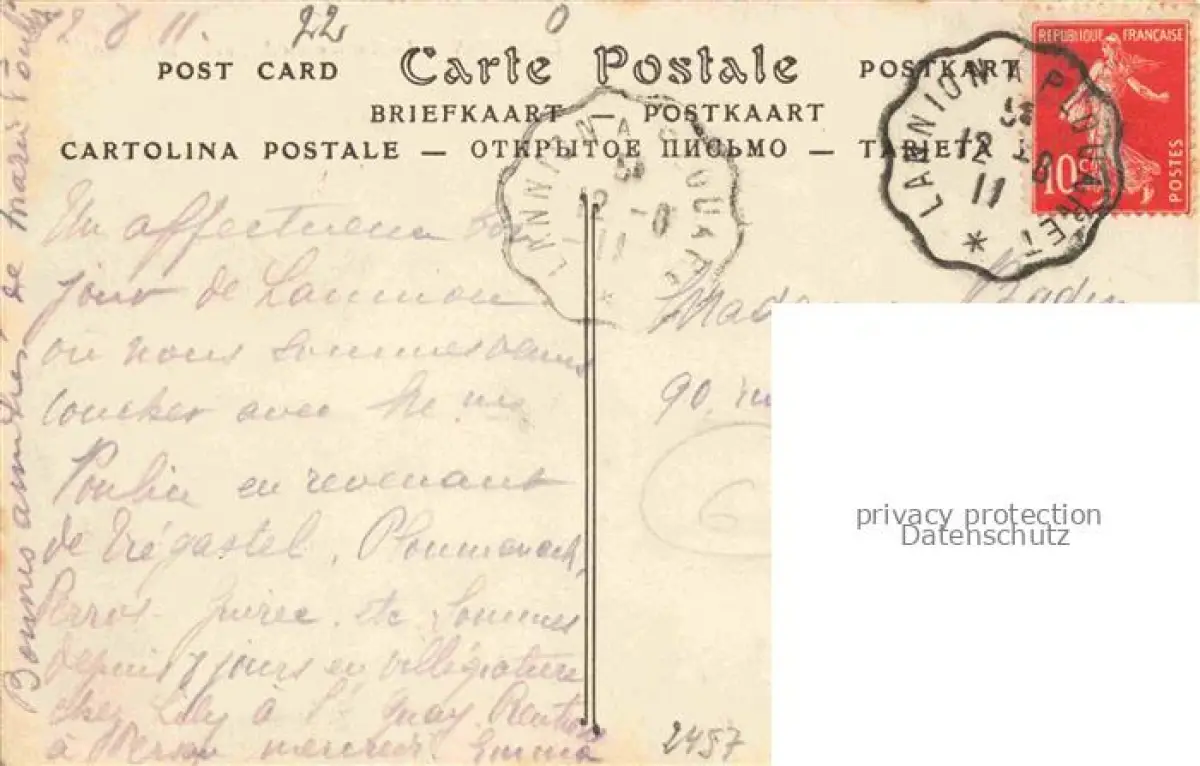 2 8 11. 22 0
POST CARD Carte Postale POSTKART
BRIEFKAART — POSTKAART
CARTOLINA POSTALE — ОТКРЫТОЕ ПИСЬМО — TARJETA
REPUBLIQUE FRANÇAISE
10c POSTES
LANNION A PLOUARET
12 -8
11
LANNION A PLOUARET
12 8
11
Un affectueux bon
jour de Lannion
où nous sommes venus
coucher avec Me mes
en revenant
de Trégastel, Ploumanach,
Perros-Guirec etc Sommes
depuis 7 jours en villégiature
chez Lily à St Quay. Rentrons
à mercredi. Emma
Bonnes amitiés de Marie
Madame Badin
90, rue
6
2457
privacy protection
Datenschutz